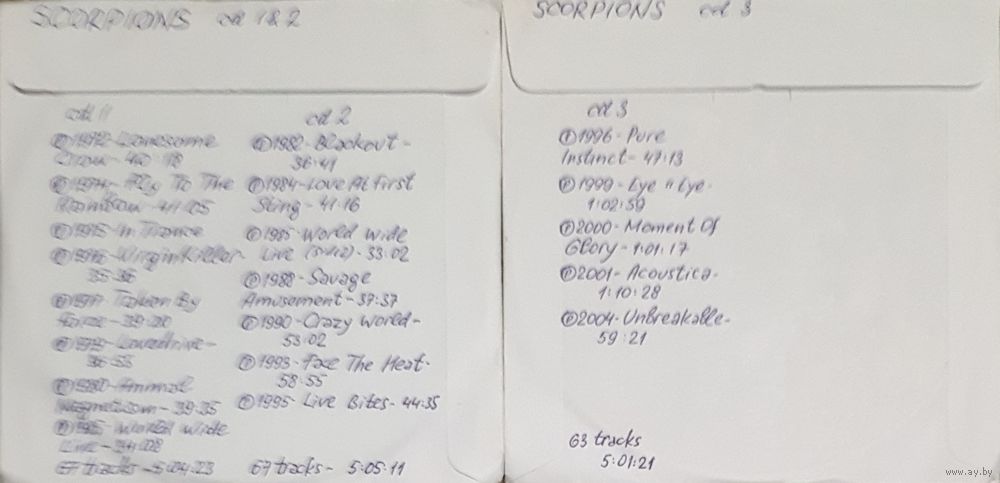 SCORPIONS cd 1&2
cd 1
℗1972-Lonesome
Crow- 40:18
℗1974- Fly To The
Rainbow- 41:05
℗1975- In Trance
℗1976-Virgin Killer-
35:36
℗1977- Taken By
Force- 39:20
℗1979-Lovedrive-
36:53
℗1980-Animal
Magnetism- 39:35
℗1985 World Wide
Live-
67 tracks- 5:04:23
cd 2
℗1982-Blackout-
36:41
℗1984-Love At First
Sting- 41:16
℗1985-World Wide
Live (5-12)- 33:02
℗1988-Savage
Amusement- 37:37
℗1990-Crazy World-
53:02
℗1993-Face The Heat-
58:55
℗1995-Live Bites- 44:35
67 tracks- 5:05:11
SCORPIONS cd 3
cd 3
℗1996-Pure
Instinct- 47:13
℗1999-Eye II Eye-
1:02:59
℗2000-Moment Of
Glory-1:01:17
℗2001-Acoustica-
1:10:28
℗2004-Unbreakable-
59:21
63 tracks
5:01:21
www.ay.by